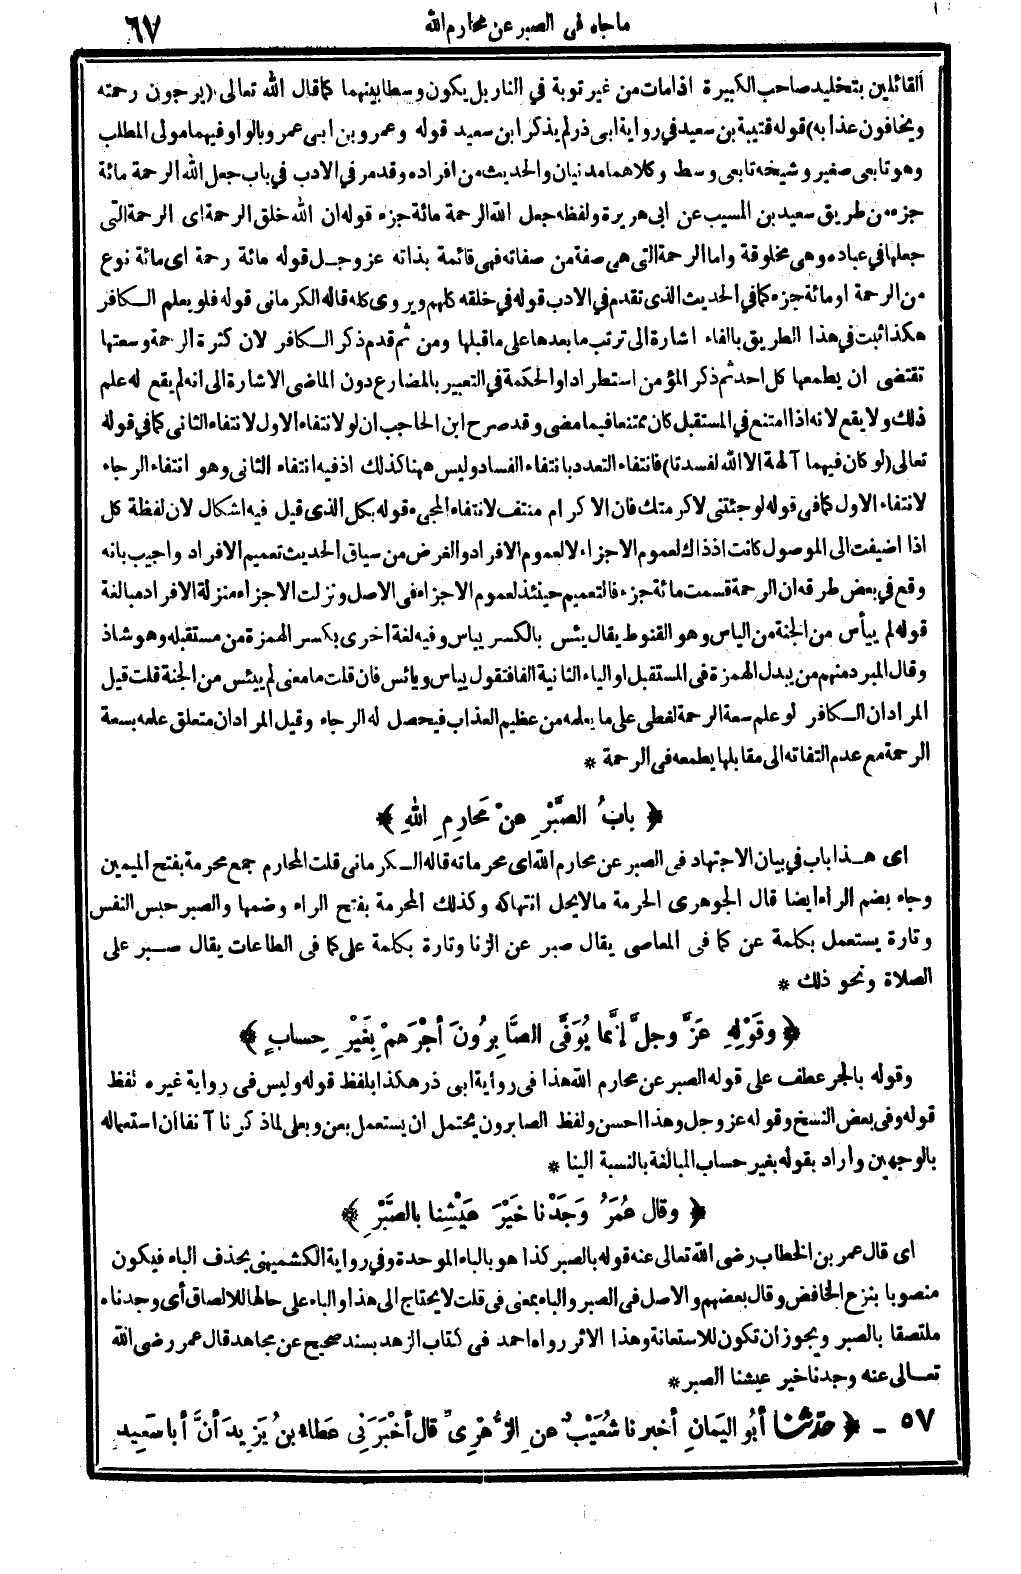 ما جاء في الصبر عن محارم الله
٦٧
القائلين بتخليد صاحب الكبيرة اذا مات من غير توبة في النار بل يكون وسطا بينهما كما قال الله تعالى (يرجون رحمته
ويخافون عذابه) قوله قتيبة بن سعيد في رواية ابى ذر لم يذكر ابن سعيد قوله وعمرو بن ابى عمرو بالواو فيهما مولى المطلب
وهو تابعى صغير وشيخه تابعى وسط وكلاهما مدنيان والحديث من افراده وقد مر في الادب في باب جعل الله الرحمة مائة
جزء من طريق سعيد بن المسيب عن ابى هريرة ولفظه جعل الله الرحمة مائة جزء قوله ان الله خلق الرحمة اى الرحمة التى
جعلها في عباده وهى مخلوقة واما الرحمة التى هى صفة من صفاته فهى قائمة بذاته عز وجل قوله مائة رحمة اى مائة نوع
من الرحمة او مائة جزء كما في الحديث الذى تقدم في الادب قوله في خلقه كلهم ويروى كله قاله الكرمانى قوله فلو يعلم الكافر
هكذا ثبت في هذا الطريق بالفاء اشارة الى ترتب ما بعدها على ما قبلها ومن ثم قدم ذكر الكافر لان كثرة الرحمة وسعتها
تقتضى ان يطمعها كل احد ثم ذكر المؤمن استطرادا والحكمة في التعبير بالمضارع دون الماضى الاشارة الى انه لم يقع له علم
ذلك ولا يقع لانه اذا امتنع في المستقبل كان ممتنعا فيما مضى وقد صرح ابن الحاجب ان لو لانتفاء الاول لانتفاء الثانى كما في قوله
تعالى (لو كان فيهما آلهة الا الله لفسدتا) فانتفاء التعدد بانتفاء الفساد وليس ههنا كذلك اذ فيه انتفاء الثانى وهو انتفاء الرجاء
لانتفاء الاول كما في قوله لو جئتنى لاكرمتك فان الاكرام منتف لانتفاء المجىء قوله بكل الذى قيل فيه اشكال لان لفظة كل
اذا اضيفت الى الموصول كانت اذ ذاك لعموم الاجزاء لا لعموم الافراد والغرض من سياق الحديث تعميم الافراد واجيب بانه
وقع في بعض طرقه ان الرحمة قسمت مائة جزء فالتعميم حينئذ لعموم الاجزاء في الاصل ونزلت الاجزاء منزلة الافراد مبالغة
قوله لم ييأس من الجنة من الياس وهو القنوط يقال يئس بالكسر يياس وفيه لغة اخرى بكسر الهمزة من مستقبله وهو شاذ
وقال المبرد منهم من يبدل الهمزة في المستقبل او الياء الثانية الفا فتقول ياس ويائس فان قلت ما معنى لم ييئس من الجنة قلت قيل
المراد ان الكافر لو علم سعة الرحمة لغطى على ما يعلمه من عظيم العذاب فيحصل له الرجاء وقيل المراد ان متعلق علمه بسعة
الرحمة مع عدم التفاته الى مقابلها يطمعه في الرحمة *
﴿ بابُ الصَّبْرِ عنْ مَحارِمِ اللهِ ﴾
اى هذا باب في بيان الاجتهاد في الصبر عن محارم الله اى محرماته قاله الكرمانى قلت المحارم جمع محرمة بفتح الميمين
وجاء بضم الراء ايضا قال الجوهرى الحرمة مالا يحل انتهاكه وكذلك المحرمة بفتح الراء وضمها والصبر حبس النفس
وتارة يستعمل بكلمة عن كما في المعاصى يقال صبر عن الزنا وتارة بكلمة على كما في الطاعات يقال صبر على
الصلاة ونحو ذلك *
﴿ وقَوْلِهِ عَزَّ وجلَّ إنَّما يُوَفَّى الصَّابِرُونَ أجْرَهمْ بِغَيْرِ حِسابٍ ﴾
وقوله بالجر عطف على قوله الصبر عن محارم الله هذا في رواية ابى ذر هكذا بلفظ قوله وليس في رواية غيره لفظ
قوله وفي بعض النسخ وقوله عز وجل وهذا احسن ولفظ الصابرون يحتمل ان يستعمل بعن وبعلى لما ذكرنا آنفا ان استعماله
بالوجهين واراد بقوله بغير حساب المبالغة بالنسبة الينا *
﴿ وقال عُمَرُ وَجَدْنا خَيْرَ عَيْشِنا بالصَّبْرِ ﴾
اى قال عمر بن الخطاب رضى الله تعالى عنه قوله بالصبر كذا هو بالباء الموحدة وفي رواية الكشميهنى بحذف الباء فيكون
منصوبا بنزع الخافض وقال بعضهم والاصل في الصبر والباء بمعنى في قلت لا يحتاج الى هذا والباء على حالها للالصاق أى وجدناه
ملتصقا بالصبر ويجوز ان تكون للاستعانة وهذا الاثر رواه احمد في كتاب الزهد بسند صحيح عن مجاهد قال عمر رضى الله
تعالى عنه وجدنا خير عيشنا الصبر *
٥٧ - ﴿ حدثنا أبُو اليَمانِ أخبرنا شُعَيْبٌ عنِ الزُّهْرِىِّ قال أخْبَرَنِى عَطاءُ بنُ يَزِيدَ أنَّ أبا سَعِيدٍ